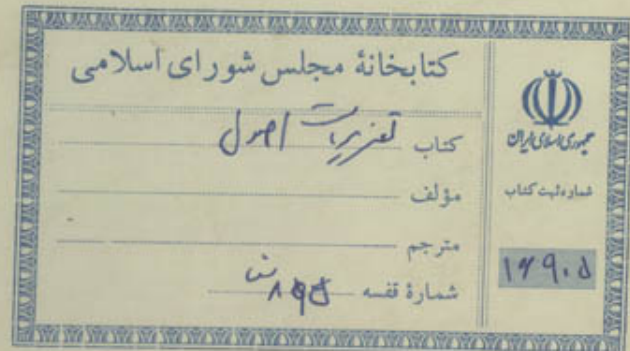 کتابخانهٔ مجلس شورای اسلامی
کتاب تقریرات اصول
مؤلف
مترجم
شمارهٔ قفسه
جمهوری اسلامی ایران
شماره ثبت کتاب
۱۲۹۰۵